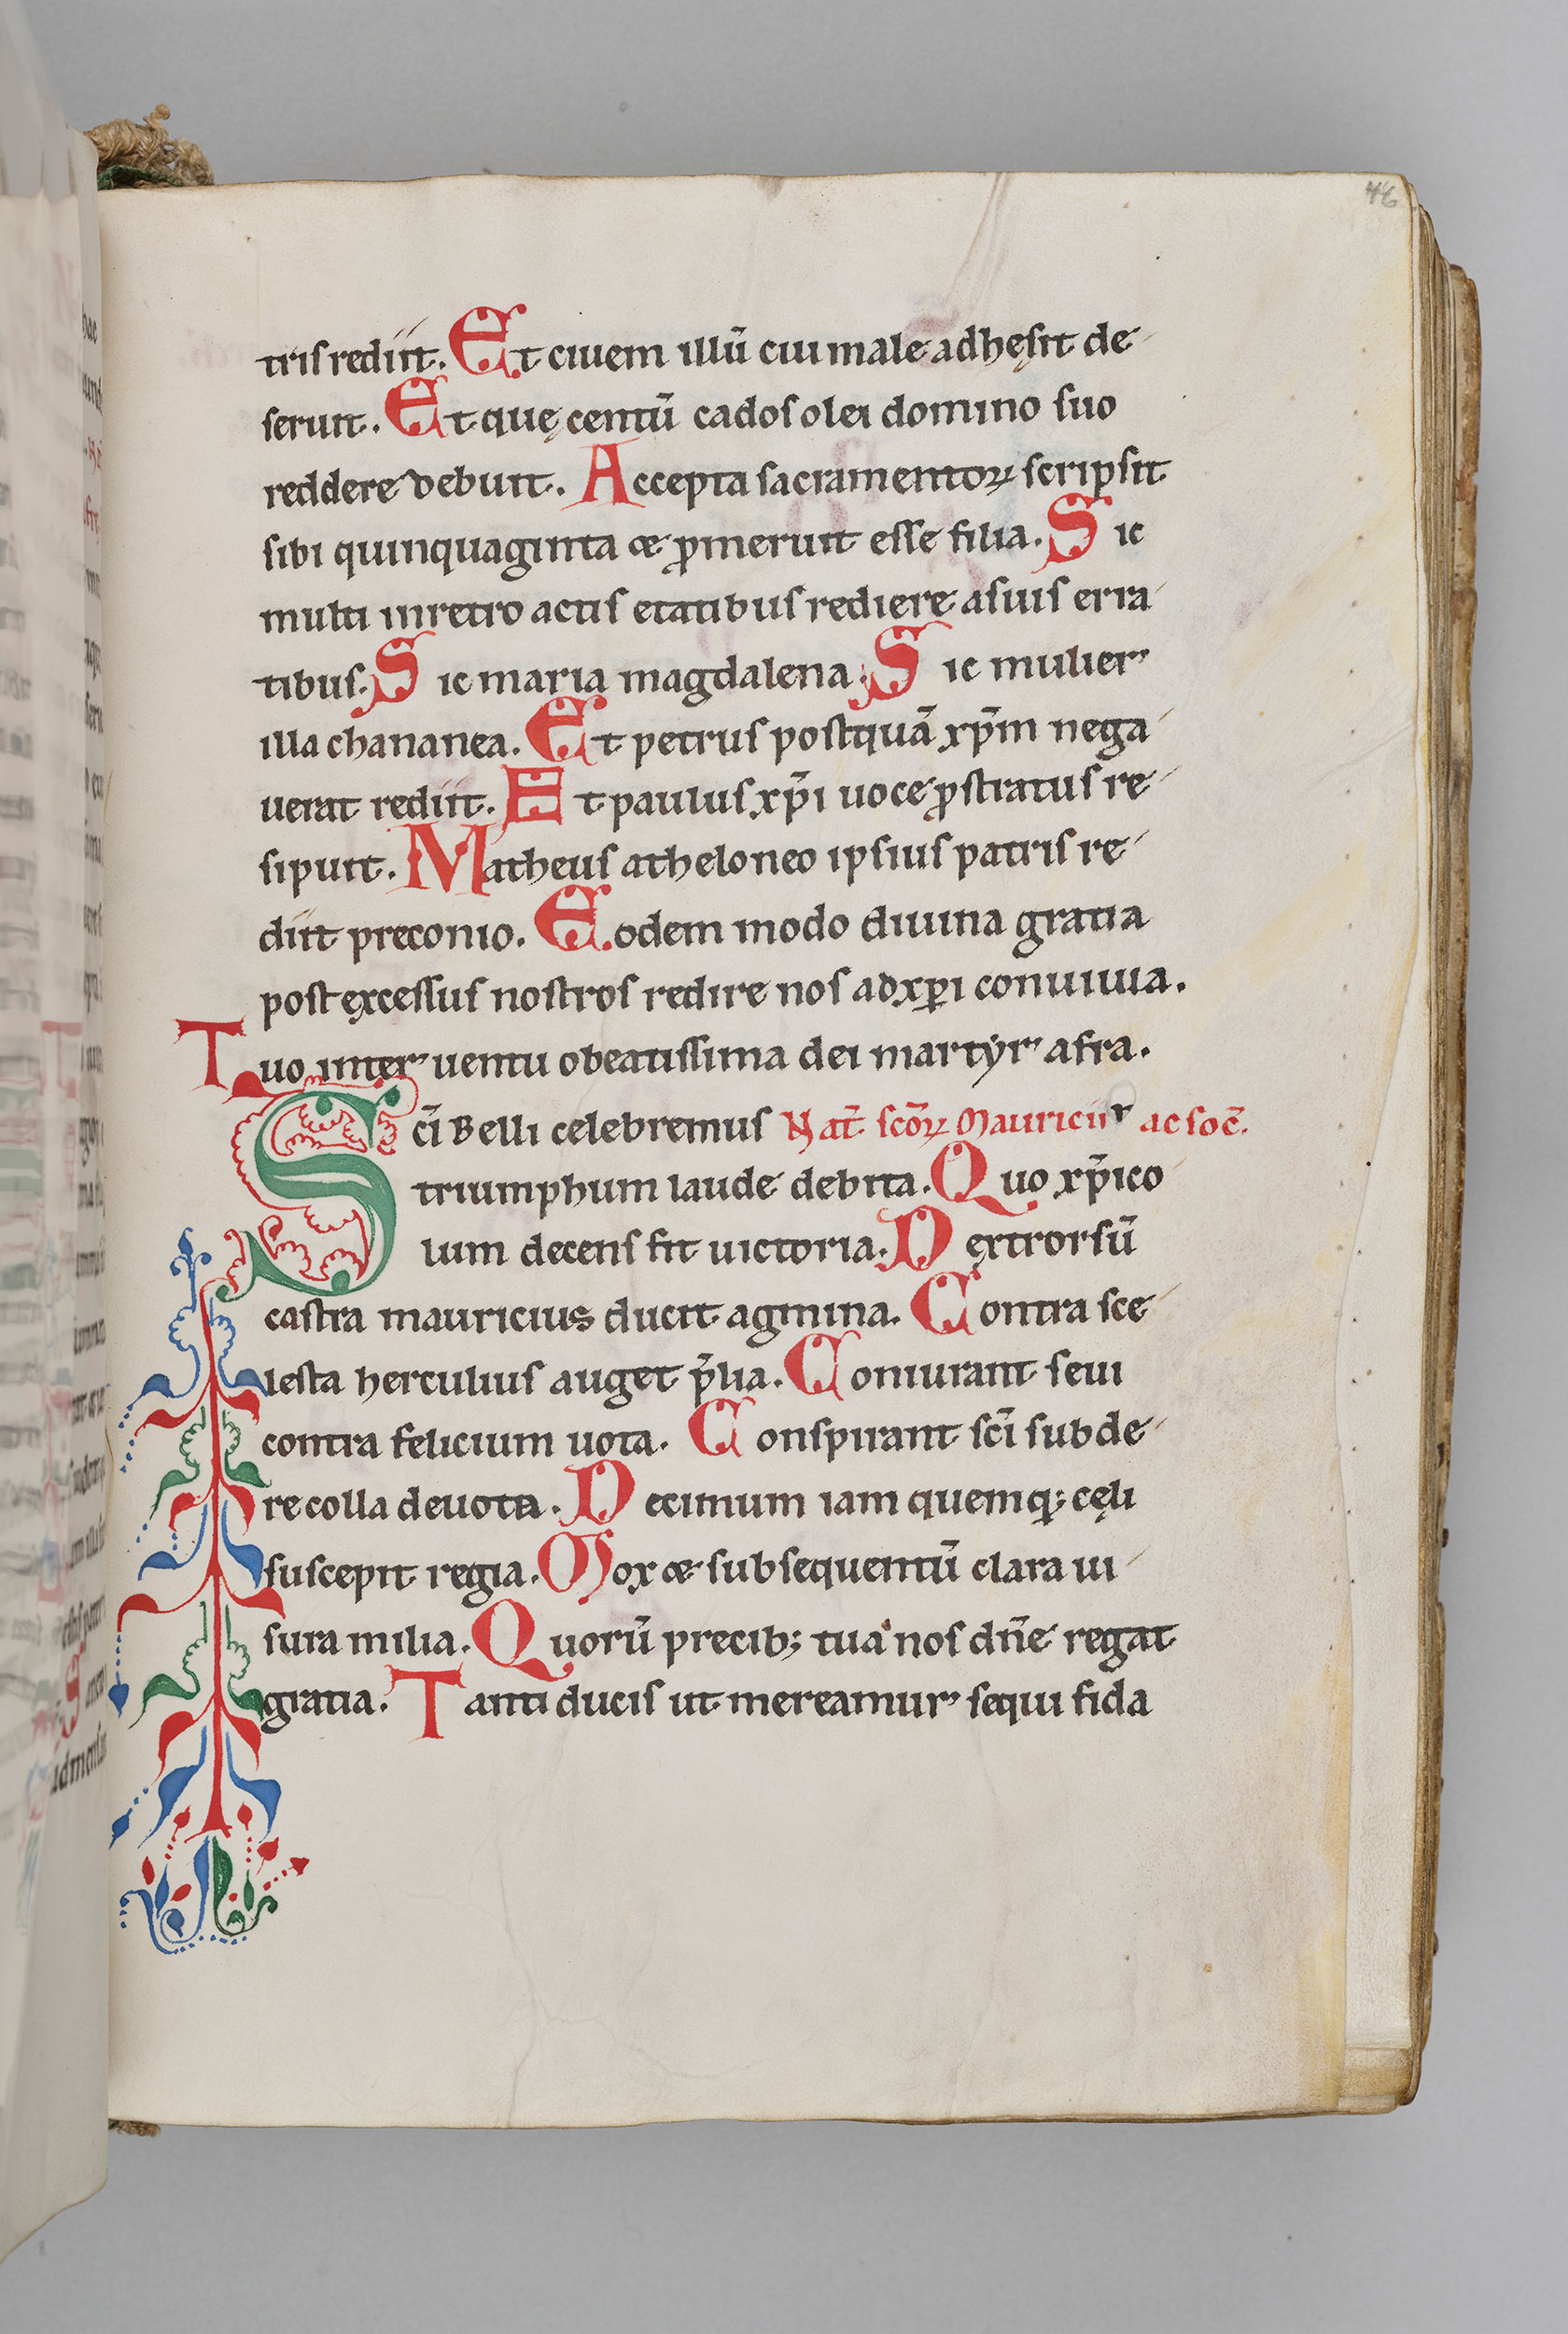 46
tris rediit. Et ciuem illū cui male adhęsit de
seruit. Et quę centū cados olei domino suo
reddere debuit. Accepta sacramentoꝝ scripsit
sibi quinquaginta & ꝓmeruit esse filia. Sic
multi inretro actis etatibus rediere asuis erra
tibus. Sic maria magdalena. Sic mulier
illa chananea. Et petrus postquā xp̄m nega
uerat rediit. Et paulus xp̄i uoce ꝓstratus re
sipuit. Matheus atheloneo ipsius patris re
diit preconio. Eodem modo diuina gratia
post excessus nostros redire nos ad xp̄i conuiuia.
Tuo interuentu o beatissima dei martyr afra.
Sc̄i Belli celebremus Nat̄ sc̄oꝝ Mauricii ac soc̄.
triumphum laude debita. Quo xp̄ico
lum decens fit uictoria. Dextrorsū
castra mauricius ducit agmina. Contra sce
lesta herculius auget p̄lia. Coniurant seui
contra felicium uota. Conspirant sc̄i subde
re colla deuota. Decimum iam quemq; cęli
suscepit regia. Mox & subsequentū clara ui
sura milia. Quorū precib; tua nos dn̄e regat
gratia. Tanti ducis ut mereamur sequi fida